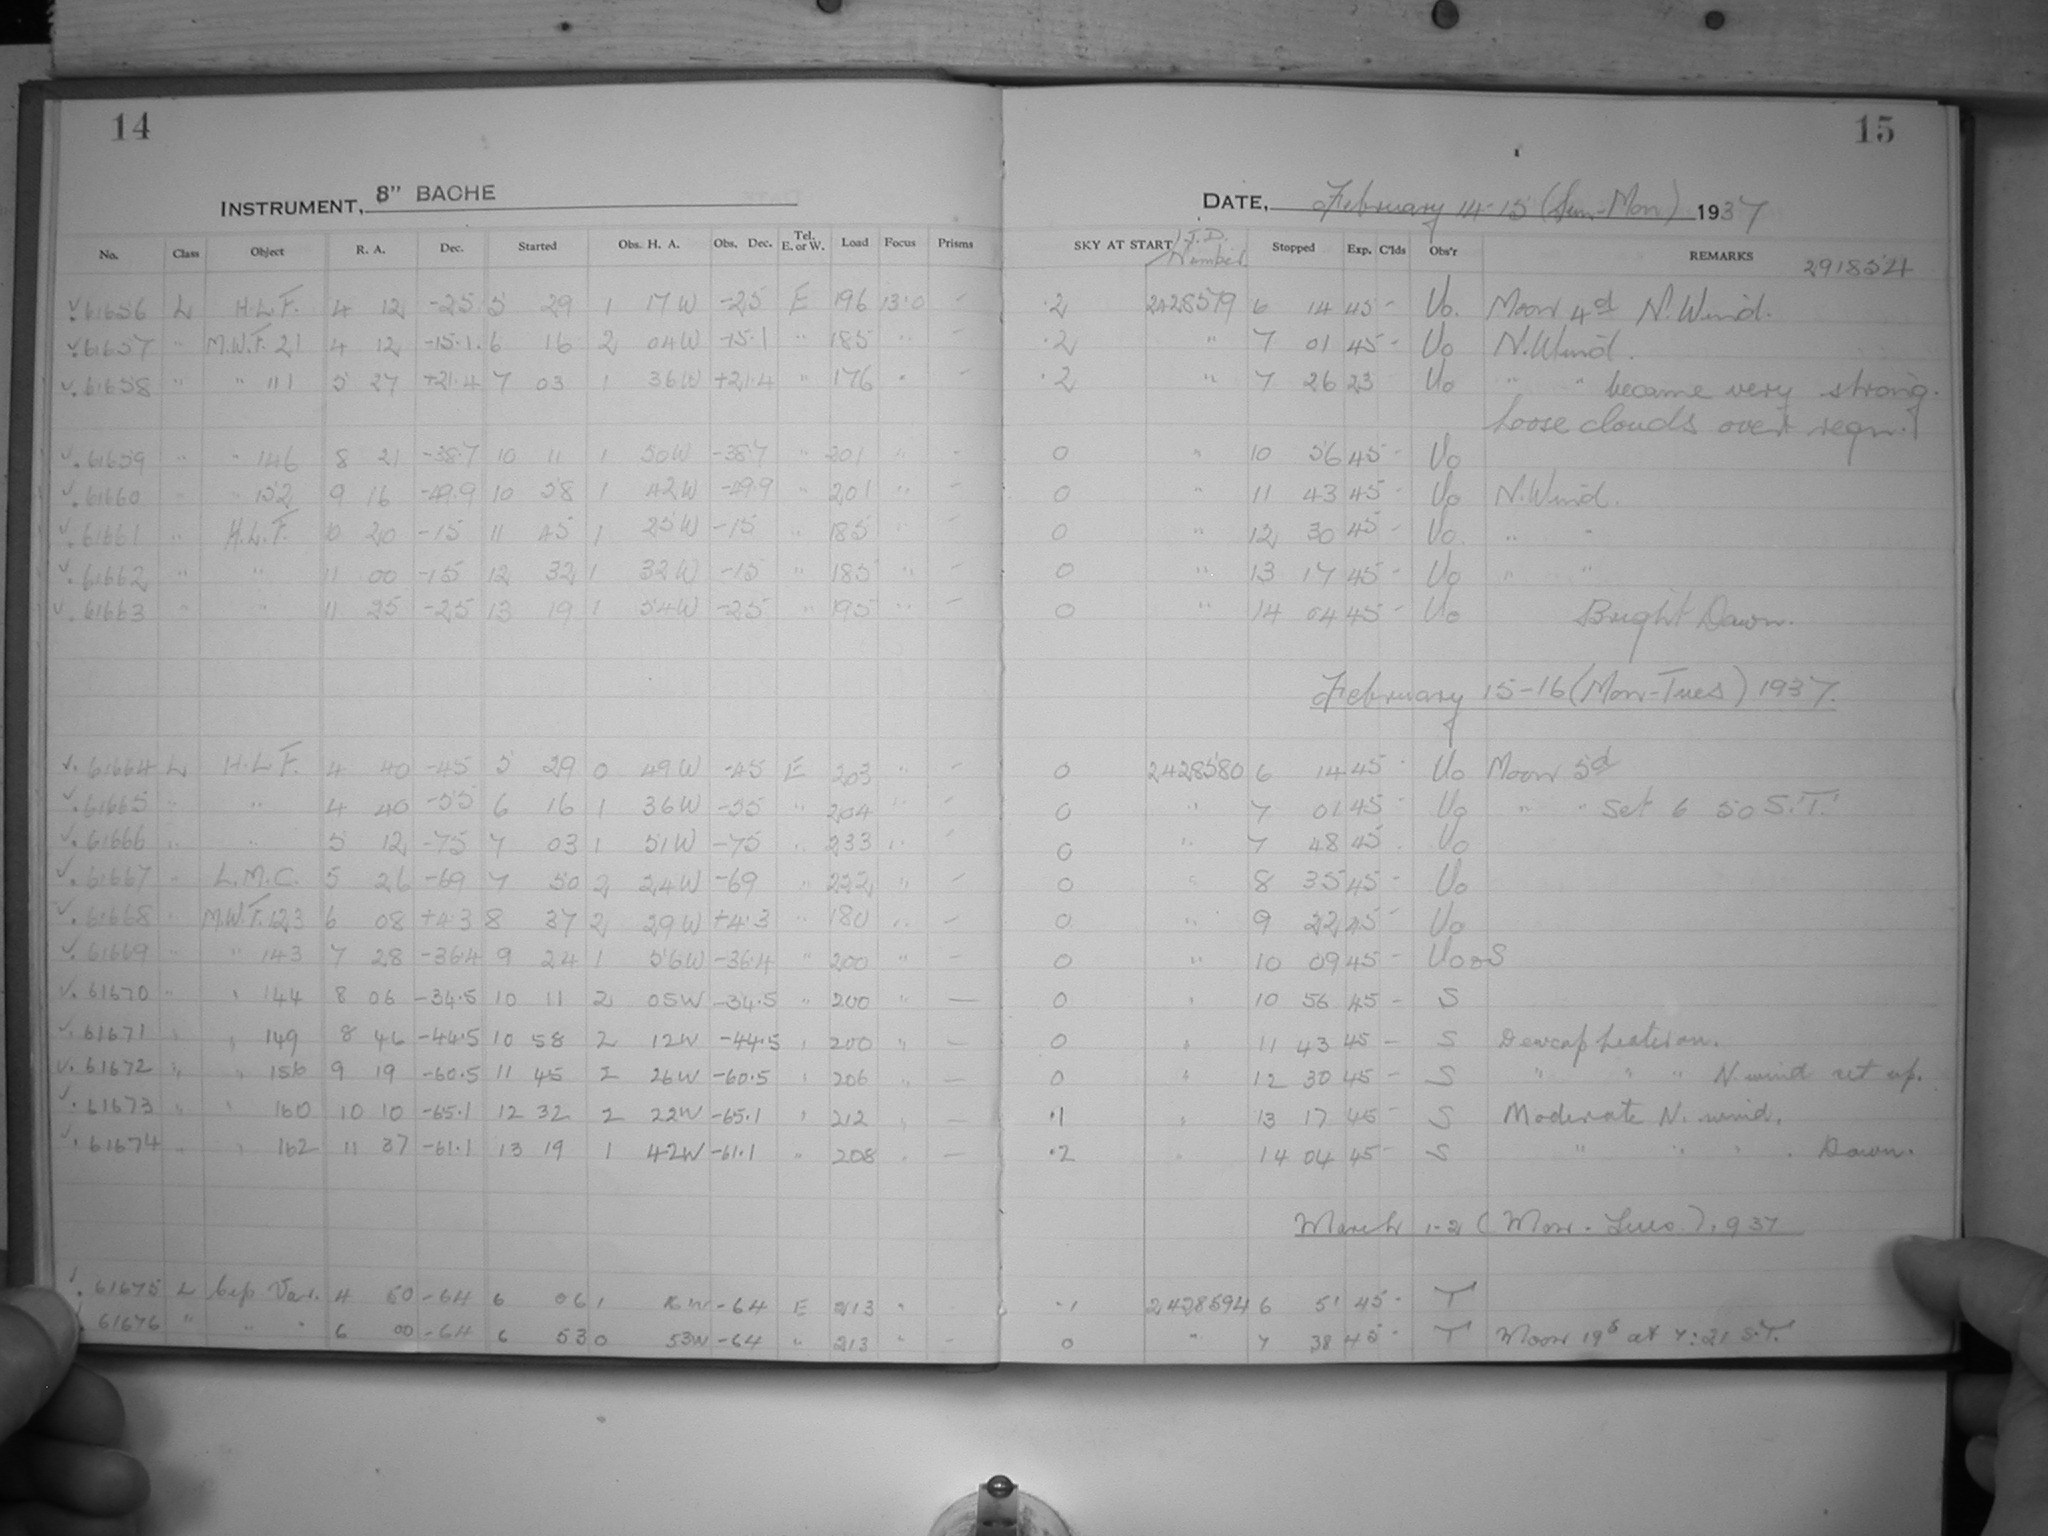 14
15
INSTRUMENT, 8" BACHE
DATE, February 14-15 (Sun-Mon) 1937
No. Class Object R. A. Dec. Started Obs. H. A. Obs. Dec. Tel. E. or W. Load Focus Prisms SKY AT START J.D. Number Stopped Exp. C'lds Obs'r REMARKS 2918524
61656 L H.L.F. 4 12 -25 5 29 1 17W -25 E 196 13.0 - .2 2428579 6 14 45 - Uo. Moon 4d N. Wind.
61657 " M.W.F. 21 4 12 -15.1 6 16 2 04W -15.1 " 185 " - .2 " 7 01 45 - Uo N. Wind.
61658 " " 111 5 27 +21.4 7 03 1 36W +21.4 " 176 " - .2 " 7 26 23 Uo " " became very strong.
Loose clouds over regn.
61659 " " 146 8 21 -38.7 10 11 1 50W -38.7 " 201 " - 0 " 10 56 45 - Uo
61660 " " 152 9 16 -49.9 10 58 1 42W -49.9 " 201 " - 0 " 11 43 45 - Uo N. Wind.
61661 " H.L.F. 10 20 -15 11 45 1 25W -15 " 185 " - 0 " 12 30 45 - Uo. " "
61662 " " 11 00 -15 12 32 1 32W -15 " 185 " - 0 " 13 17 45 - Uo " "
61663 " " 11 25 -25 13 19 1 54W -25 " 195 " - 0 " 14 04 45 - Uo Bright Dawn.
February 15-16 (Mon-Tues) 1937.
61664 L H.L.F. 4 40 -45 5 29 0 49W -45 E 203 " - 0 2428580 6 14 45 - Uo Moon 5d
61665 " " 4 40 -55 6 16 1 36W -55 " 204 " - 0 " 7 01 45 - Uo " " set 6 50 S.T.
61666 " " 5 12 -75 7 03 1 51W -75 " 233 " - 0 " 7 48 45 . Uo
61667 " L.M.C. 5 26 -69 7 50 2 24W -69 " 222 " - 0 " 8 35 45 - Uo
61668 " M.W.F. 123 6 08 +4.3 8 37 2 29W +4.3 " 180 " - 0 " 9 22 45 - Uo
61669 " " 143 7 28 -36.4 9 24 1 56W -36.4 " 200 " - 0 " 10 09 45 - Uo & S
61670 " " 144 8 06 -34.5 10 11 2 05W -34.5 " 200 " - 0 " 10 56 45 - S
61671 " " 149 8 46 -44.5 10 58 2 12W -44.5 " 200 " - 0 " 11 43 45 - S Dewcap heater on.
61672 " " 156 9 19 -60.5 11 45 2 26W -60.5 " 206 " - 0 " 12 30 45 - S " " " N. wind set up.
61673 " " 160 10 10 -65.1 12 32 2 22W -65.1 " 212 " - .1 " 13 17 45 - S Moderate N. wind.
61674 " " 162 11 37 -61.1 13 19 1 42W -61.1 " 208 " - .2 " 14 04 45 - S " " " Dawn.
March 1-2 (Mon. Tues.) 1937
61675 L Cep Var. 4 50 -64 6 06 1 16W -64 E 213 " - .1 2428594 6 51 45 - T
61676 " " " 6 00 -64 6 53 0 53W -64 " 213 " - 0 " 7 38 45 - T Moon 19d at 7:21 S.T.